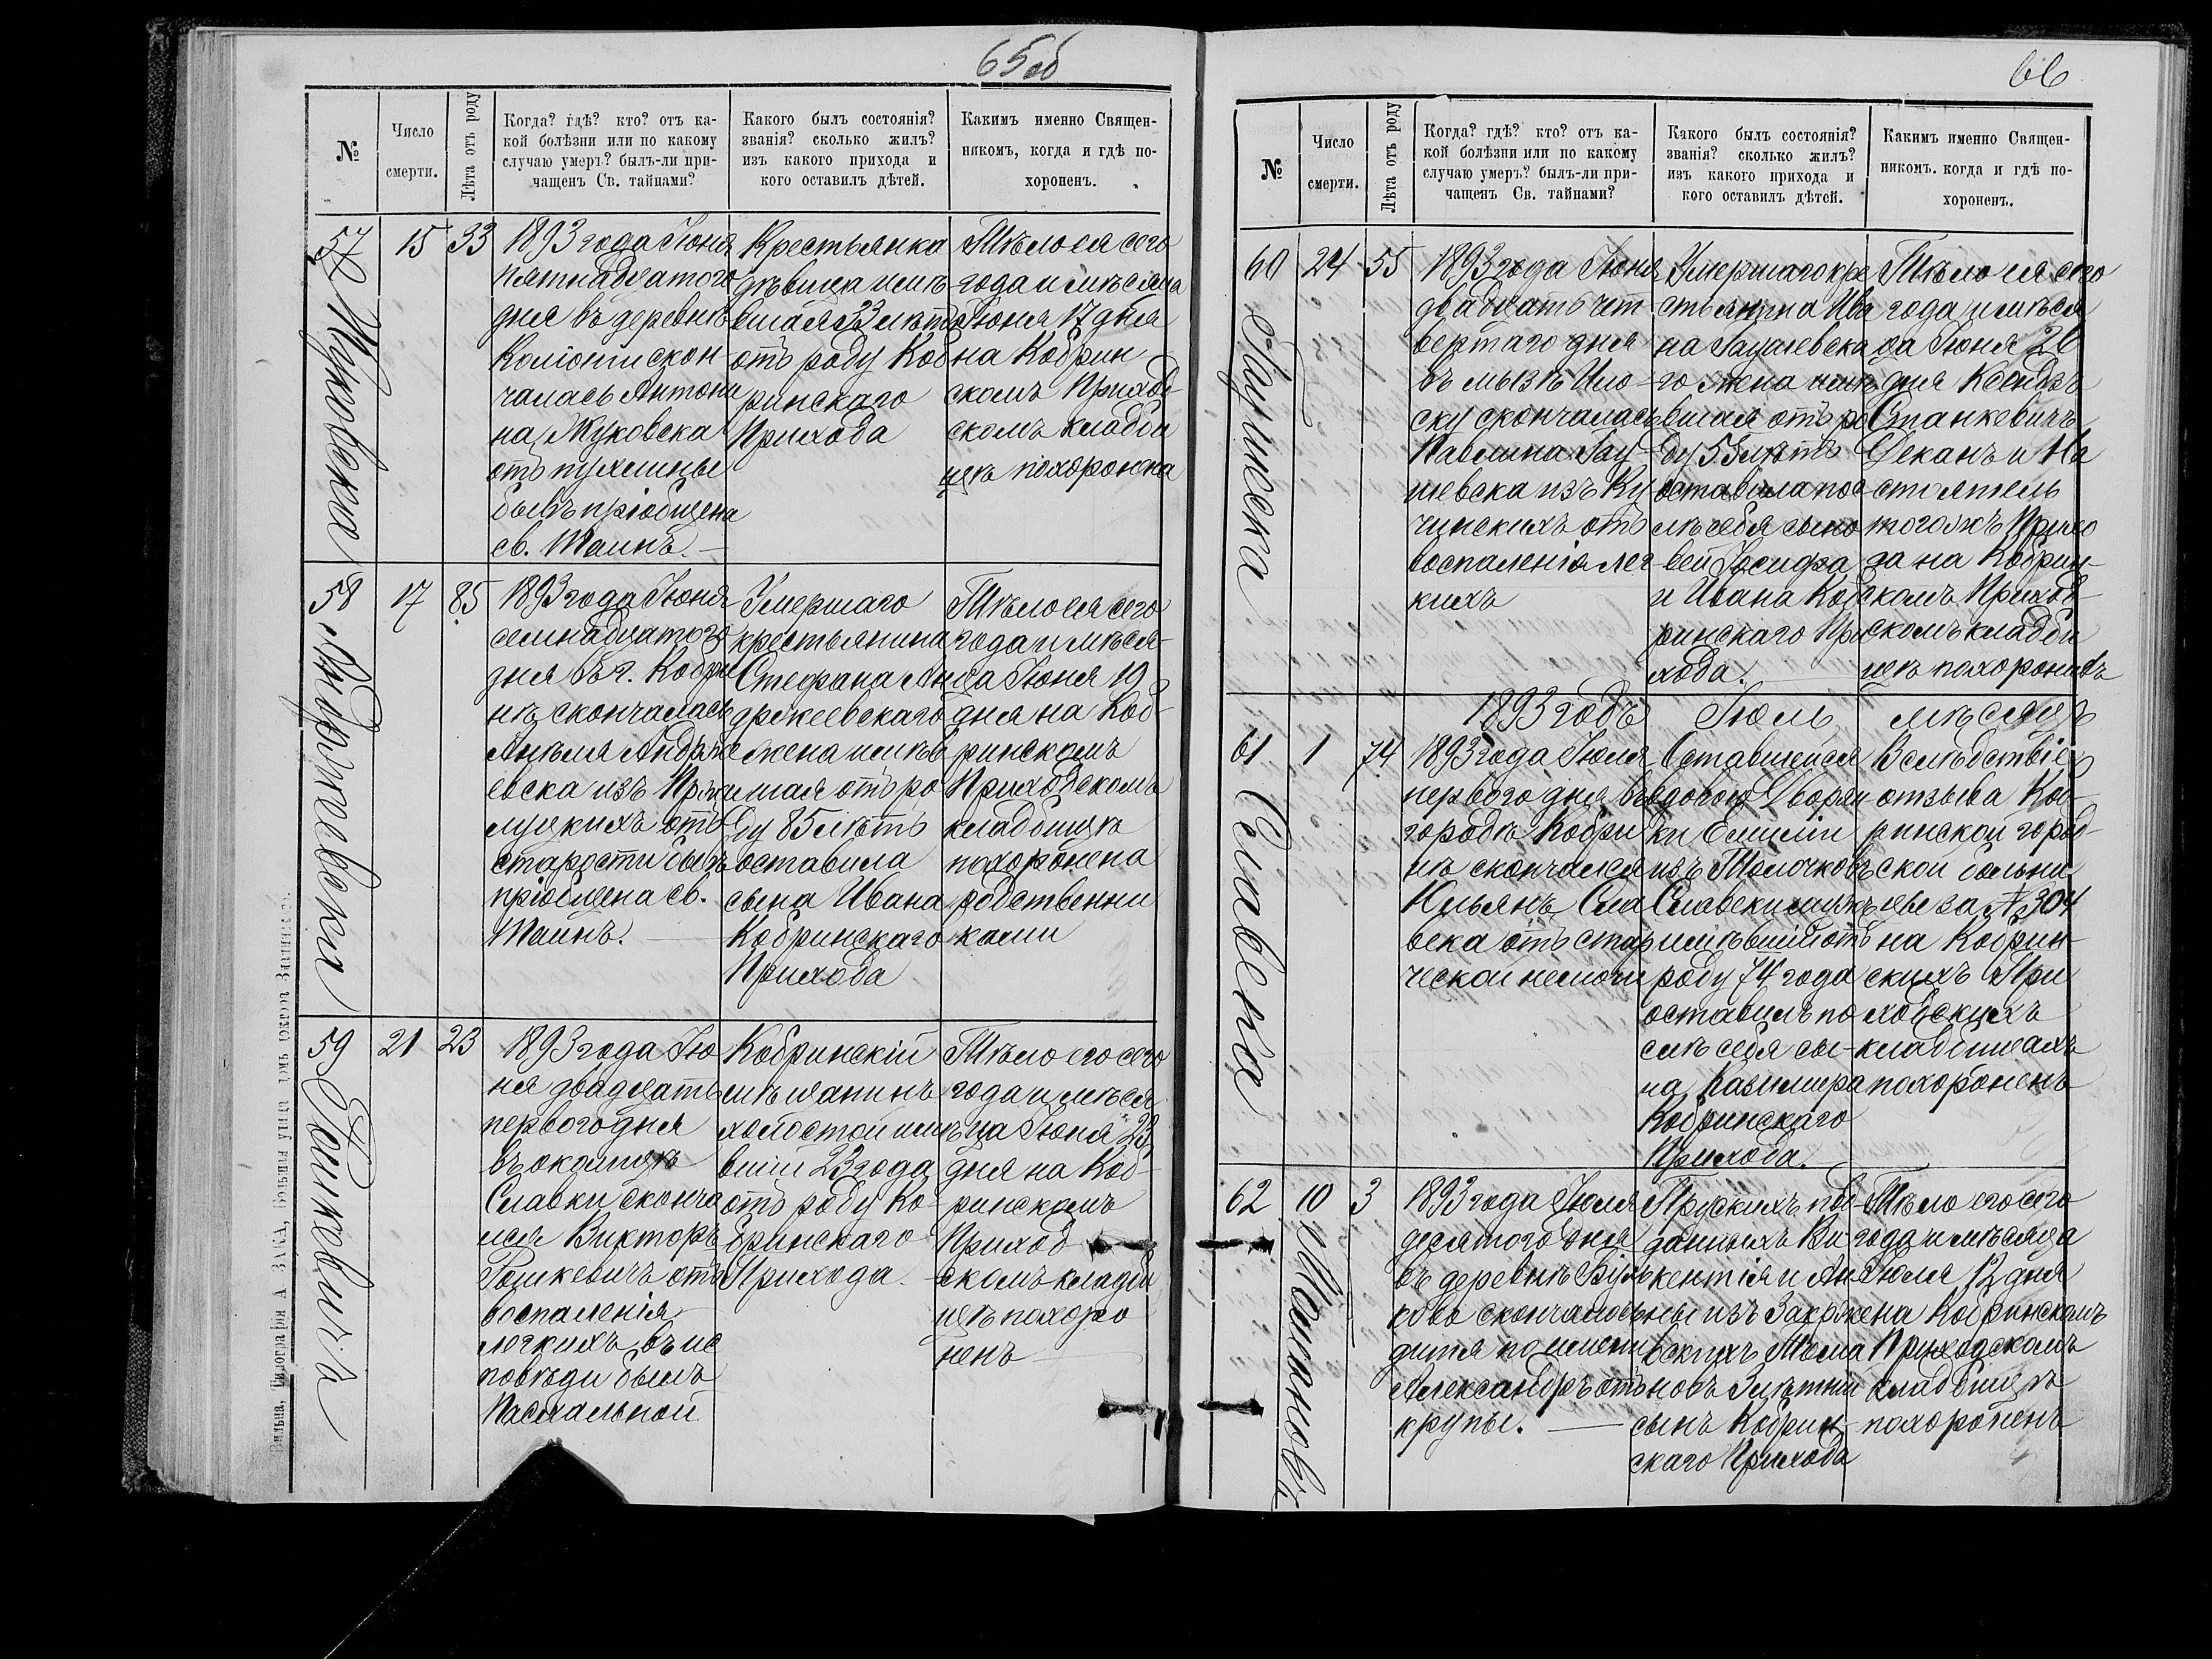 65об
№
Число
смерти.
Лѣта отъ роду
Когда? гдѣ? кто? отъ ка-
кой болѣзни или по какому
случаю умеръ? былъ-ли при-
чащенъ Св. тайнами?
Какого былъ состоянія?
званія? сколько жилъ?
изъ какого прихода и
кого оставилъ дѣтей.
Какимъ именно Священ-
никомъ, когда и гдѣ по-
хороненъ.
57
Жуковска
15
33
1893 года Іюня
пятнадцатого
дня въ деревнѣ
скон
чалась Антони
на Жуковска
отъ
бывъ пріобщена
св. Таинъ.
Крестьянка
дѣвица имѣ
вшая 33 лѣтъ
отъ роду Коб
ринскаго
Прихода
Тѣло ея сего
года и мѣсяца
Іюня 17 дня
на Кобрин
скомъ Приход
скомъ кладби
щѣ похоронена
58
Андржеевска
17
85
1893 года Іюня
семнадцатого
дня въ г. Кобри
нѣ скончалась
Анѣля Андрже
евска изъ
отъ
старости бывъ
пріобщена св.
Таинъ.
Умершаго
крестьянина
Стефана Ан
држеевскаго
жена имѣв
шая отъ ро
ду 85 лѣтъ
оставила
сына Ивана
Кобринскаго
Прихода
Тѣло ея сего
года и мѣся-
ца Іюня 19
дня на Коб-
ринскомъ
Приходскомъ
кладбищѣ
похоронена
родственни
ками
59
Гошкевичъ
21
23
1893 года Ію
ня двадцать
первого дня
въ околицѣ
Славки сконча
лся Викторъ
Гошкевичъ отъ
воспаленія
легкихъ въ ис
повѣди былъ
Пасхальной
Кобринскій
мѣщанинъ
холостой имѣ
вшій 23 года
отъ роду Ко-
бринскаго
Прихода.
Тѣло его сего
года и мѣся
ца Іюня 23
дня на Коб-
ринскомъ
Приход
скомъ кладби
щѣ похоро
ненъ
66
№
Число
смерти.
Лѣта отъ роду
Когда? гдѣ? кто? отъ ка-
кой болѣзни или по какому
случаю умеръ? былъ-ли при-
чащенъ Св. тайнами?
Какого былъ состоянія?
званія? сколько жилъ?
изъ какого прихода и
кого оставилъ дѣтей.
Какимъ именно Священ-
никомъ. когда и гдѣ по-
хороненъ.
60
24
55
1893 года Іюня
двадцать чет
вертаго дня
въ мызѣ Ило-
ску скончалась
Павлина Гау-
шевска изъ Ку
чинскихъ отъ
воспаленія лег
кихъ
Умершаго кре
стьянина Ива
на
го жена имѣ
вшая отъ ро
ду 55 лѣтъ
оставила пос
лѣ себя сыно
вей Іосифа
и Ивана Коб
ринскаго При
хода.
Тѣло ея сего
года и мѣся
ца Іюня 26
дня Ксендзъ
Станкевичъ
Деканъ и На
стоятель
тогожъ Прихо
да на Кобрин-
скомъ Приход-
скомъ кладби
щѣ похоронилъ
1893 годъ Іюль мѣсяцъ
61
Славска
1
74
1893 года Іюля
первого дня въ
городѣ Кобри
нѣ скончался
Юльянъ Сла
века отъ стар
ческой немочи
Оставшейся
вдовою Дворян
ки Емиліи
изъ Толочковъ
Славски мужъ
имѣвшій отъ
роду 74 года
оставилъ по
слѣ себя сы-
на Казимира
Кобринскаго
Прихода.
Вслѣдствіе
отзыва Коб-
ринской город-
ской больни
цы за № 304
на Кобрин-
скихъ При
ходскихъ
кладбищахъ
похороненъ
62
10
3
1893 года Іюля
десятого дня
въ деревнѣ Бух
ково скончалось
дитя по имени
Александръ отъ
крупы.
Прускихъ под-
данныхъ Ви-
кентія и Ан
ны изъ Закрже
вскихъ
новъ 3 лѣтній
сынъ Кобрин
скаго Прихода
Тѣло его сего
года и мѣсяца
Іюля 12 дня
на Кобринскомъ
Приходскомъ
кладбищѣ
похороненъ